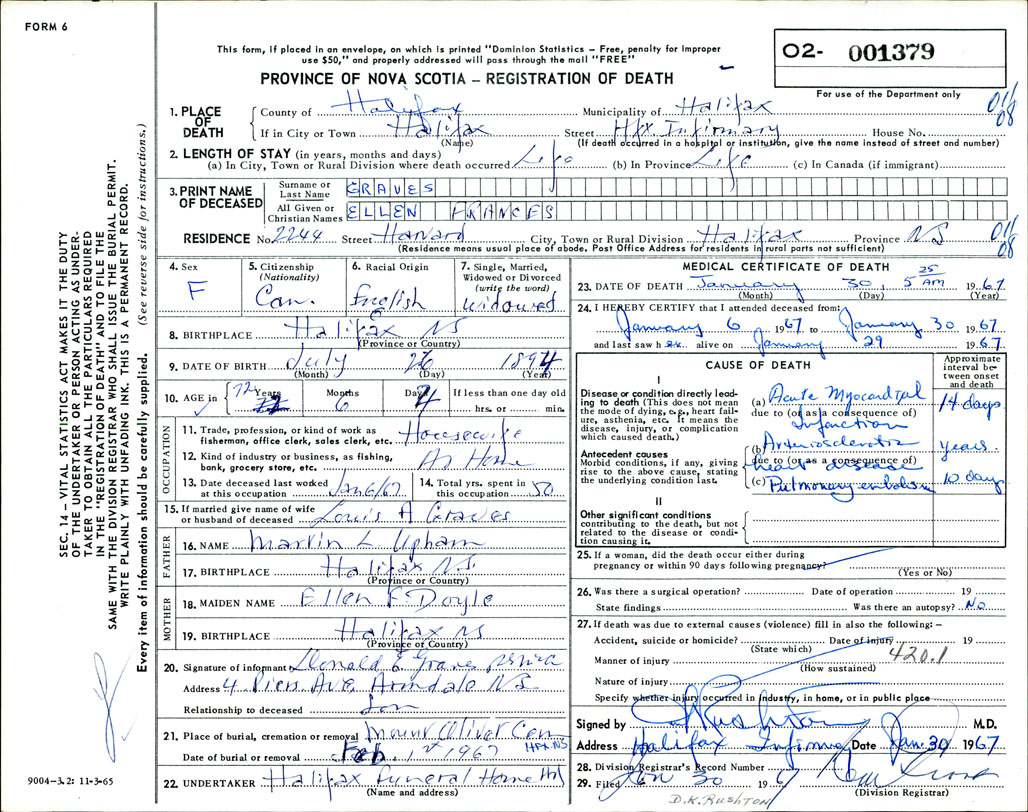 FORM 6
This form, if placed in an envelope, on which is printed "Dominion Statistics – Free, penalty for improper
use $50," and properly addressed will pass through the mail "FREE"
PROVINCE OF NOVA SCOTIA – REGISTRATION OF DEATH
O2- 001379
For use of the Department only
01/08
1. PLACE OF DEATH
County of Halifax Municipality of Halifax
If in City or Town Halifax Street Hfx Infirmary House No.
(Name) (If death occurred in a hospital or institution, give the name instead of street and number)
2. LENGTH OF STAY (in years, months and days)
(a) In City, Town or Rural Division where death occurred Life (b) In Province Life (c) In Canada (if immigrant)
3. PRINT NAME OF DECEASED
Surname or Last Name GRAVES
All Given or Christian Names ELLEN FRANCES
RESIDENCE No. 2244 Street Harvard City, Town or Rural Division Halifax Province NS
01/08
(Residence means usual place of abode. Post Office Address for residents in rural parts not sufficient)
4. Sex F
5. Citizenship (Nationality) Can.
6. Racial Origin English
7. Single, Married, Widowed or Divorced (write the word) Widowed
8. BIRTHPLACE Halifax NS
(Province or Country)
9. DATE OF BIRTH July 26 1894
(Month) (Day) (Year)
10. AGE in 72 Years Months 6 Days 4 If less than one day old
hrs. or min.
OCCUPATION
11. Trade, profession, or kind of work as fisherman, office clerk, sales clerk, etc. Housewife
12. Kind of industry or business, as fishing, bank, grocery store, etc. At Home
13. Date deceased last worked at this occupation Jan 6/67
14. Total yrs. spent in this occupation 50
15. If married give name of wife or husband of deceased Louis A Graves
FATHER
16. NAME Martin L. Upham
17. BIRTHPLACE Halifax N.S.
(Province or Country)
MOTHER
18. MAIDEN NAME Ellen F Doyle
19. BIRTHPLACE Halifax NS
(Province or Country)
20. Signature of informant Donald E Grave
Address 4 Piers Ave, Armdale N.S
Relationship to deceased Son
21. Place of burial, cremation or removal Mount Olivet Cem
HFX. NS
Date of burial or removal Feb. 1st 1967
22. UNDERTAKER Halifax Funeral Home
(Name and address)
MEDICAL CERTIFICATE OF DEATH
23. DATE OF DEATH January 30, 5 25 AM 1967
(Month) (Day) (Year)
24. I HEREBY CERTIFY that I attended deceased from:
January 6 1967 to January 30 1967
and last saw h er alive on January 29 1967
CAUSE OF DEATH
Approximate interval between onset and death
I
Disease or condition directly leading to death (This does not mean the mode of dying, e.g., heart failure, asthenia, etc. It means the disease, injury, or complication which caused death.)
(a) Acute Myocardial 14 days
due to (or as a consequence of)
Infarction
Antecedent causes
Morbid conditions, if any, giving rise to the above cause, stating the underlying condition last.
(b) Arteriosclerotic years
due to (or as a consequence of)
heart disease
(c) Pulmonary embolism 10 days
II
Other significant conditions contributing to the death, but not related to the disease or condition causing it.
25. If a woman, did the death occur either during pregnancy or within 90 days following pregnancy?
(Yes or No)
26. Was there a surgical operation? Date of operation 19
State findings Was there an autopsy? No
27. If death was due to external causes (violence) fill in also the following: –
Accident, suicide or homicide? Date of injury 19
(State which) 420.1
Manner of injury
(How sustained)
Nature of injury
Specify whether injury occurred in industry, in home, or in public place
Signed by Rushton M.D.
Address Halifax Infirmary Date Jan. 30 1967
28. Division Registrar's Record Number
29. Filed Jan 30 1967
(Division Registrar)
D.K. RUSHTON
SEC. 14 – VITAL STATISTICS ACT MAKES IT THE DUTY
OF THE UNDERTAKER OR PERSON ACTING AS UNDER-
TAKER TO OBTAIN ALL THE PARTICULARS REQUIRED
IN THE "REGISTRATION OF DEATH" AND TO FILE THE
SAME WITH THE DIVISION REGISTRAR WHO SHALL ISSUE THE BURIAL PERMIT.
WRITE PLAINLY WITH UNFADING INK. THIS IS A PERMANENT RECORD.
Every item of information should be carefully supplied. (See reverse side for instructions.)
9004–3.2: 11-3-65